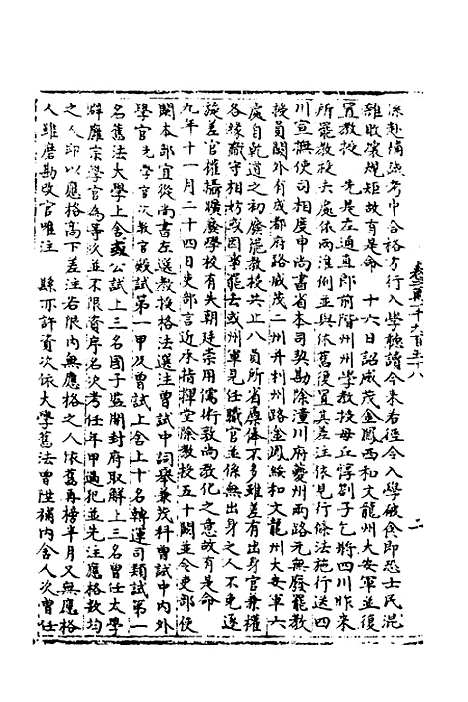 添赴補試考中合格方行入學極請今來若徑令入學破食即恐士民混
雜敗壞規矩故有是命　十六日詔成茂金鳳西和文龍州大安軍並復
置教授　先是左通直郎前階州州學教授毋丘惇劄子乞將四川昨來
所罷教授去處依兩淮例並與依舊復置其差注依見行條法施行送四
川宣撫使司相度申尚書省本司契勘除潼川府夔州兩路元無廢罷教
授員闕外有成都府路威茂二州并利州路金鳳綏和文龍州大安軍六
處自乾道之初廢罷教授共止八員所省廩俸不多雖差有出身官兼權
各緣職守相妨或因事罷去或州軍見任職官並係無出身之人不免逐
旋差官權攝曠廢學校有失朝廷崇用儒術敦尚教化之意故有是命
九年十一月二十四日吏部言近奉指揮堂除教授五十闕並令吏部使
闕本部宜從尚書左選教授格法選注曾試中詞學兼茂科曾試中內外
學官充學官次教官殿試第一甲及曾試上舍上十名轉運司類試第一
名舊法大學上舍或公試上三名國子監開封府取解上三名曾任太學
辟廱宗學官為等以並不限資序名次考任年甲過犯並先注應格數均
之人即以應格高下差注若限內無應格之人依舊再榜半月又無應格
人雖磨勘改官唯注　縣亦許資次依大學舊法曾陞補內舍人次曾任